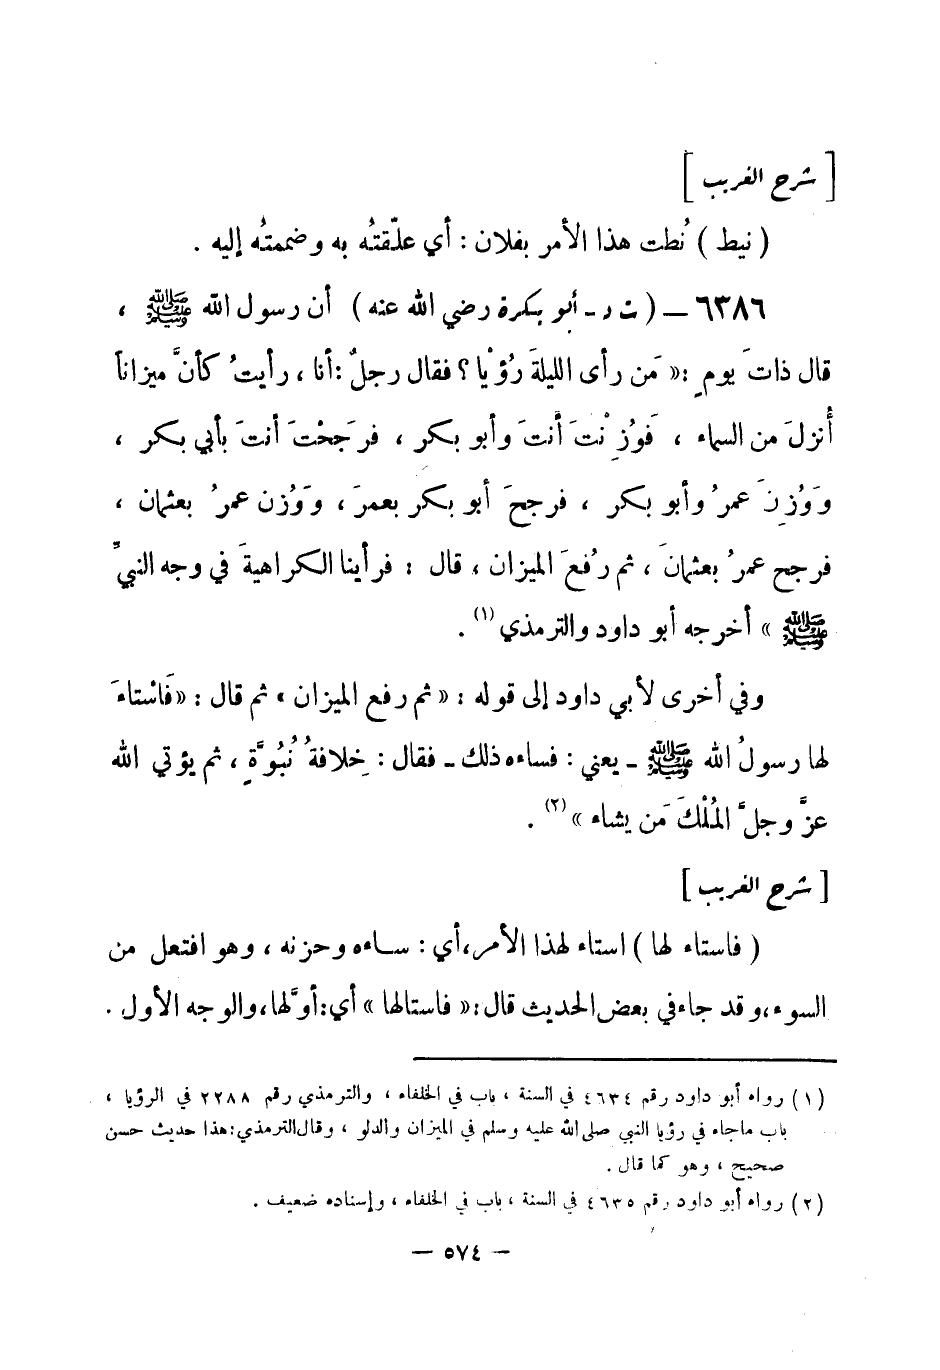 [ شرح الغريب ]
( نيط ) نُطت هذا الأمر بفلان : أي علّقتُه به وضممتُه إليه .
٦٣٨٦ – ( ت د - أبو بكرة رضي الله عنه ) أن رسول الله ﷺ ،
قال ذاتَ يومٍ : « مَن رأى الليلةَ رُؤْيا ؟ فقال رجلٌ : أنا ، رأيتُ كأنَّ ميزاناً
أُنزلَ من السماء ، فَوُزِنْتَ أنتَ وأبو بكر ، فرَجَحْتَ أنتَ بأبي بكر ،
وَوُزِنَ عمرُ وأبو بكر ، فرجحَ أبو بكر بعمرَ ، وَوُزن عمرُ بعثمان ،
فرجح عمرُ بعثمانَ ، ثم رُفعَ الميزان ، قال : فرأينا الكراهيةَ في وجه النبيِّ
ﷺ » أخرجه أبو داود والترمذي (١) .
وفي أخرى لأبي داود إلى قوله : « ثم رفع الميزان » ثم قال : « فَاسْتاءَ
لها رسولُ الله ﷺ - يعني : فساءه ذلك - فقال : خِلافةُ نُبُوَّةٍ ، ثم يؤتي الله
عزَّ وجلَّ المُلْكَ مَن يشاء » (٢) .
[ شرح الغريب ]
( فاستاء لها ) استاء لهذا الأمر ، أي : ساءه وحزنه ، وهو افتعل من
السوء ، وقد جاء في بعض الحديث قال : « فاستالها » أي : أوَّلها ، والوجه الأول .
(١) رواه أبو داود رقم ٤٦٣٤ في السنة ، باب في الخلفاء ، والترمذي رقم ٢٢٨٨ في الرؤيا ،
باب ماجاء في رؤيا النبي صلى الله عليه وسلم في الميزان والدلو ، وقال الترمذي : هذا حديث حسن
صحيح ، وهو كما قال .
(٢) رواه أبو داود رقم ٤٦٣٥ في السنة ، باب في الخلفاء ، وإسناده ضعيف .
– ٥٧٤ –